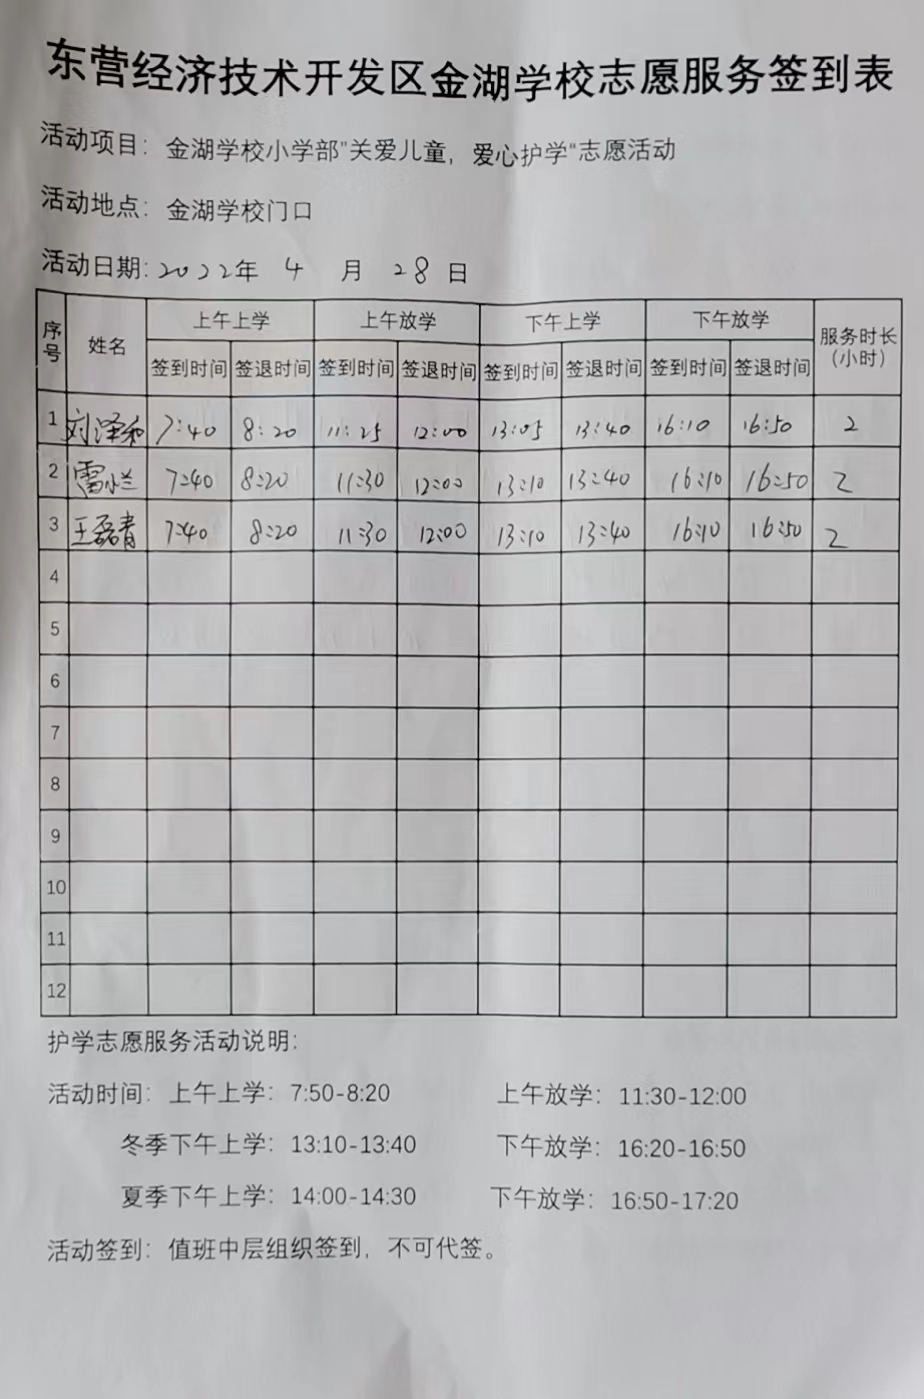 东营经济技术开发区金湖学校志愿服务签到表
活动项目：金湖学校小学部"关爱儿童，爱心护学"志愿活动
活动地点：金湖学校门口
活动日期：2022年 4 月 28 日
序号 姓名 上午上学 上午放学 下午上学 下午放学 服务时长（小时）
签到时间 签退时间 签到时间 签退时间 签到时间 签退时间 签到时间 签退时间
1 刘泽和 7:40 8:20 11:25 12:00 13:05 13:40 16:10 16:50 2
2 雷 7:40 8:20 11:30 12:00 13:10 13:40 16:10 16:50 2
3 王磊青 7:40 8:20 11:30 12:00 13:10 13:40 16:10 16:50 2
4
5
6
7
8
9
10
11
12
护学志愿服务活动说明：
活动时间：上午上学：7:50-8:20 上午放学：11:30-12:00
冬季下午上学：13:10-13:40 下午放学：16:20-16:50
夏季下午上学：14:00-14:30 下午放学：16:50-17:20
活动签到：值班中层组织签到，不可代签。